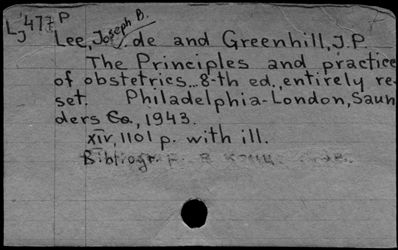 LJ 477 P
Lee, Joseph B. de and Greenhill, J.P.
The Principles and practice
of obstetrics...8-th ed., entirely re-
set. Philadelphia-London, Saun
ders Co., 1943.
XIV, 1101 p. with ill.
Bibliogr.